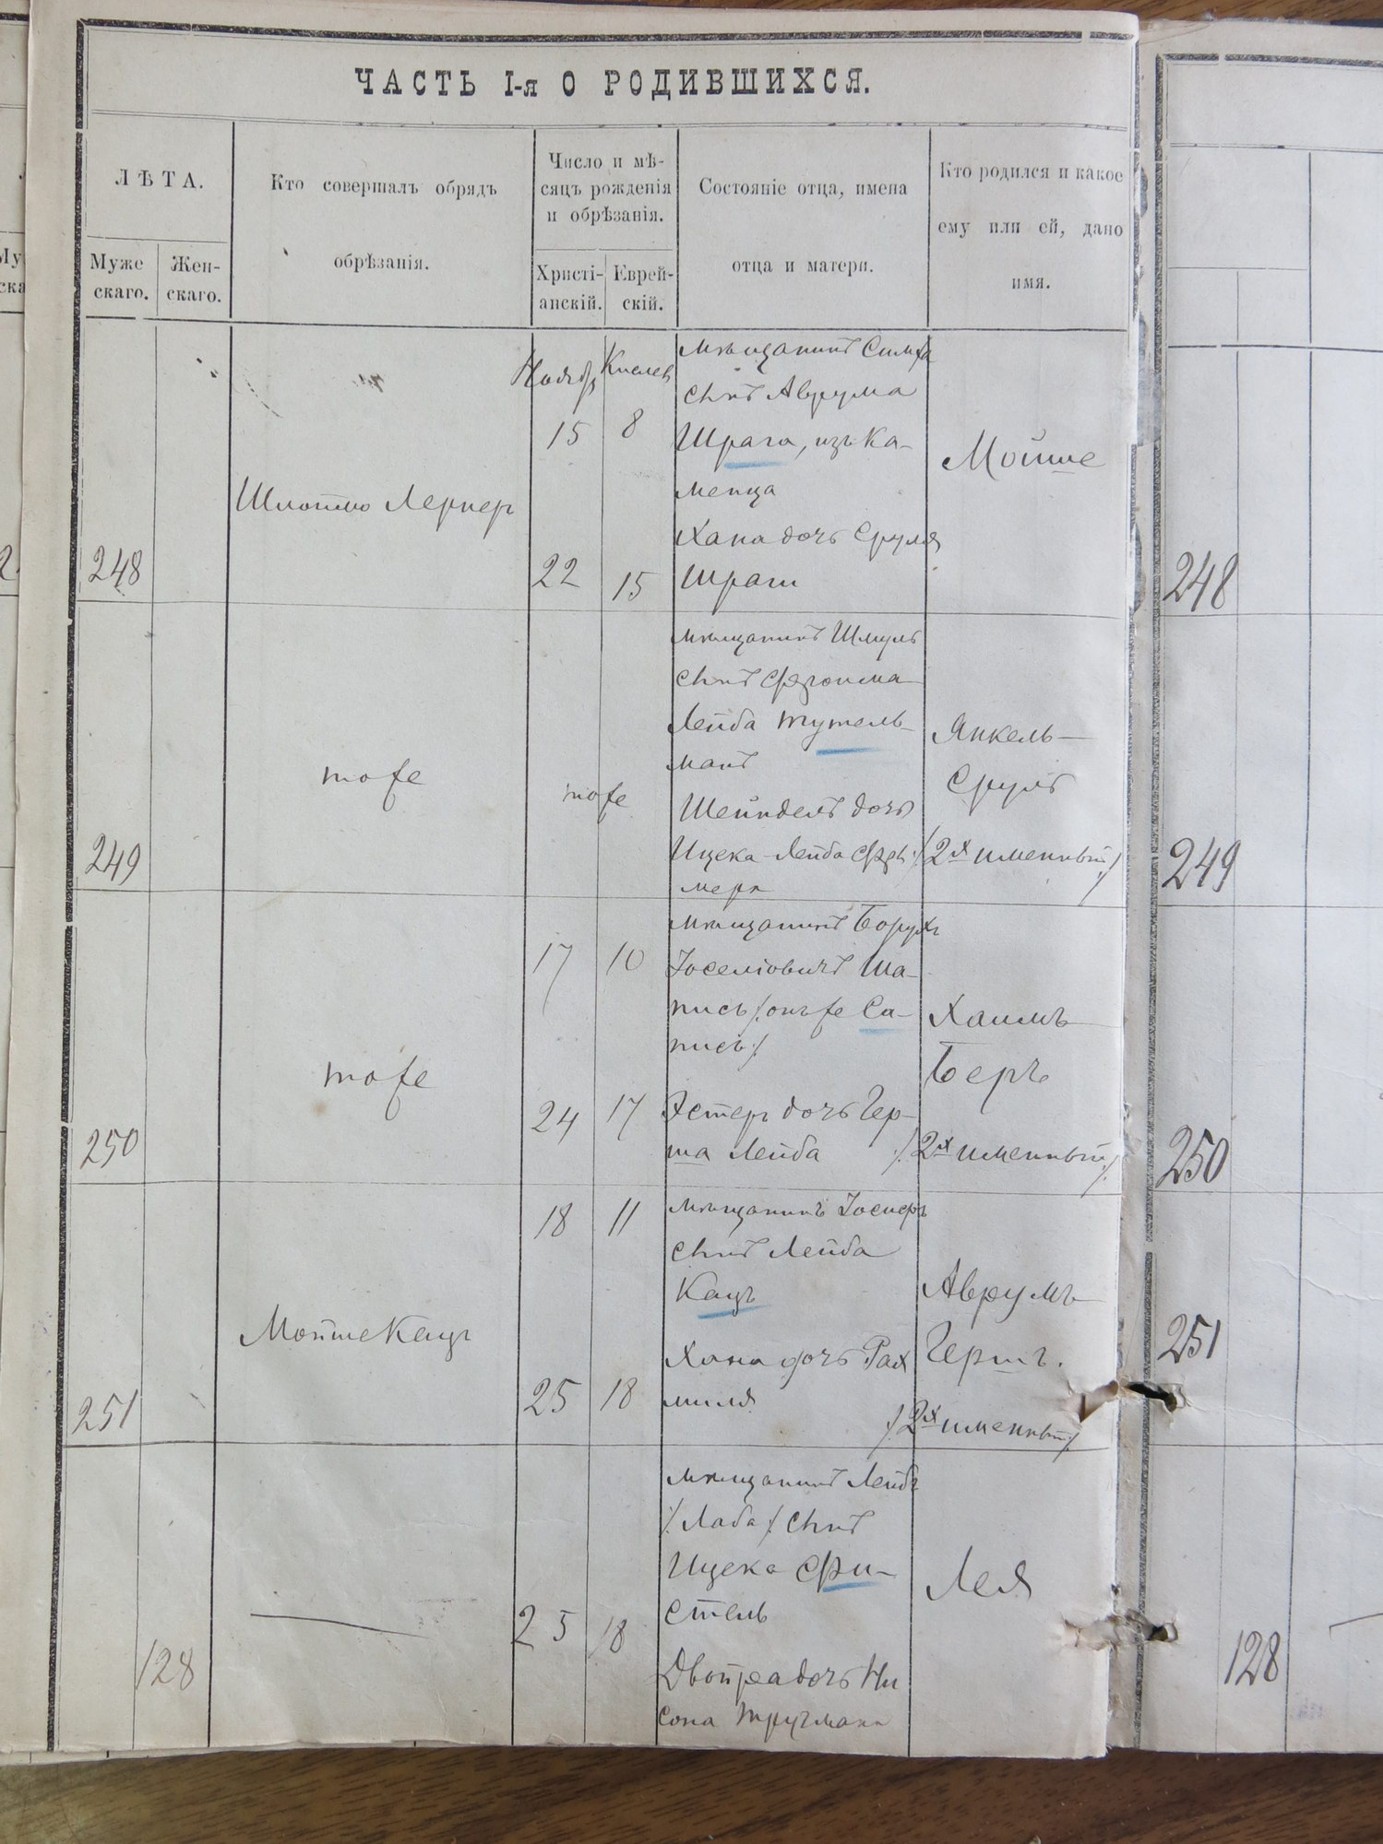 ЧАСТЬ I-я О РОДИВШИХСЯ.
ЛѢТА.
Муже
скаго.
Жен-
скаго.
Кто совершалъ обрядъ
обрѣзанія.
Число и мѣ-
сяцъ рожденія
и обрѣзанія.
Христі-
анскій.
Еврей-
скій.
Состояніе отца, имена
отца и матери.
Кто родился и какое
ему или ей, дано
имя.
248
Лернер
Ноябр
15
22
Кислев
8
15
Мѣщанинъ Симха
сынъ Аврума
Шрага, изъ Ка-
менца
Хана дочь Сруля
Шраги
Мойше
248
249
тоже
тоже
мѣщанинъ Шмуль
сынъ
Лейба Тутель-
манъ
Шейндель дочь
Ицека-Лейба
Янкель-
Сруль
/2х именный/
249
250
тоже
17
24
10
17
мѣщанинъ Борухъ
Іоселіовичъ Ша-
пись /:онъ же Са-
пись:/
Эстеръ дочь Гер-
ша Лейба
Хаимъ
Беръ
/:2х именный:/
250
251
Мойше Кацъ
18
25
11
18
мѣщанинъ Іосифъ
сынъ Лейба
Кацъ
Хана дочь Рах
миля
Аврумъ
Гершъ.
/:2х именный:/
251
128
25
18
мѣщанинъ Лейбъ
/:Лаба/: сынъ
Ицека Фи-
стель
Двойра дочь Ни
сона Тругмана
Лея
128